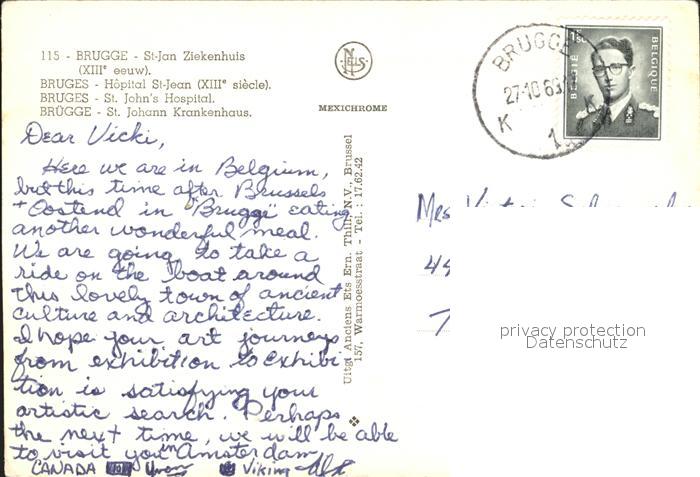 115 - BRUGGE - St-Jan Ziekenhuis
(XIIIe eeuw).
BRUGES - Hôpital St-Jean (XIIIe siècle).
BRUGES - St. John's Hospital.
BRÜGGE - St. Johann Krankenhaus.
NELS
MEXICHROME
BRUGGE
27-10 66
K K
1
1F50
BELGIË
BELGIQUE
Dear Vicki,
Here we are in Belgium,
but this time after Brussels
+ Oostend in "Brugge" eating
another wonderful meal.
We are going to take a
ride on the boat around
this lovely town of ancient
culture and architecture.
I hope your art journeys
from exhibition to exhibi-
tion is satisfying your
artistic search. Perhaps
the next time, we will be able
to visit you in Amsterdam
CANADA Viking
Uitgi Anciens Ets Ern. Thill, N.V. Brussel
157, Warmoesstraat - Tel. : 17.62.42
Mrs
privacy protection
Datenschutz